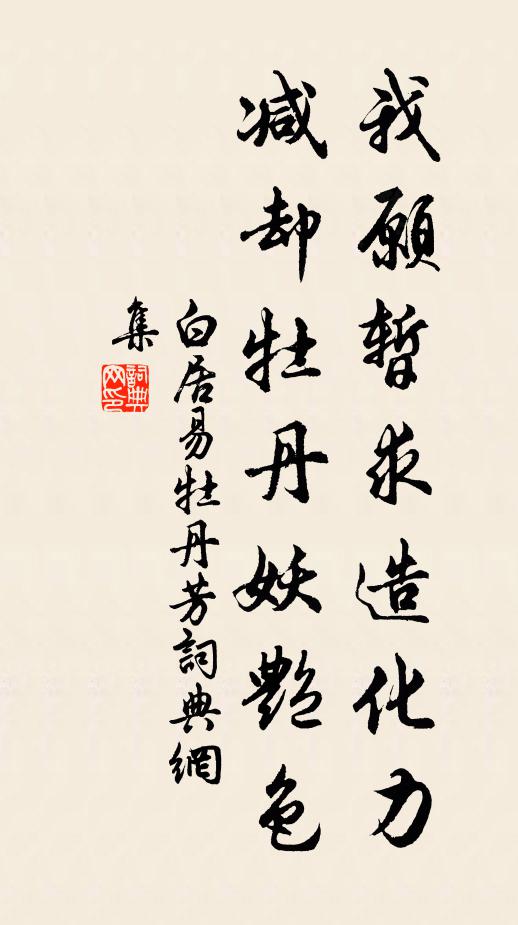 我願暫求造化力
減却牡丹妖艷色
白居易牡丹芳詞典網
集
詞典网印